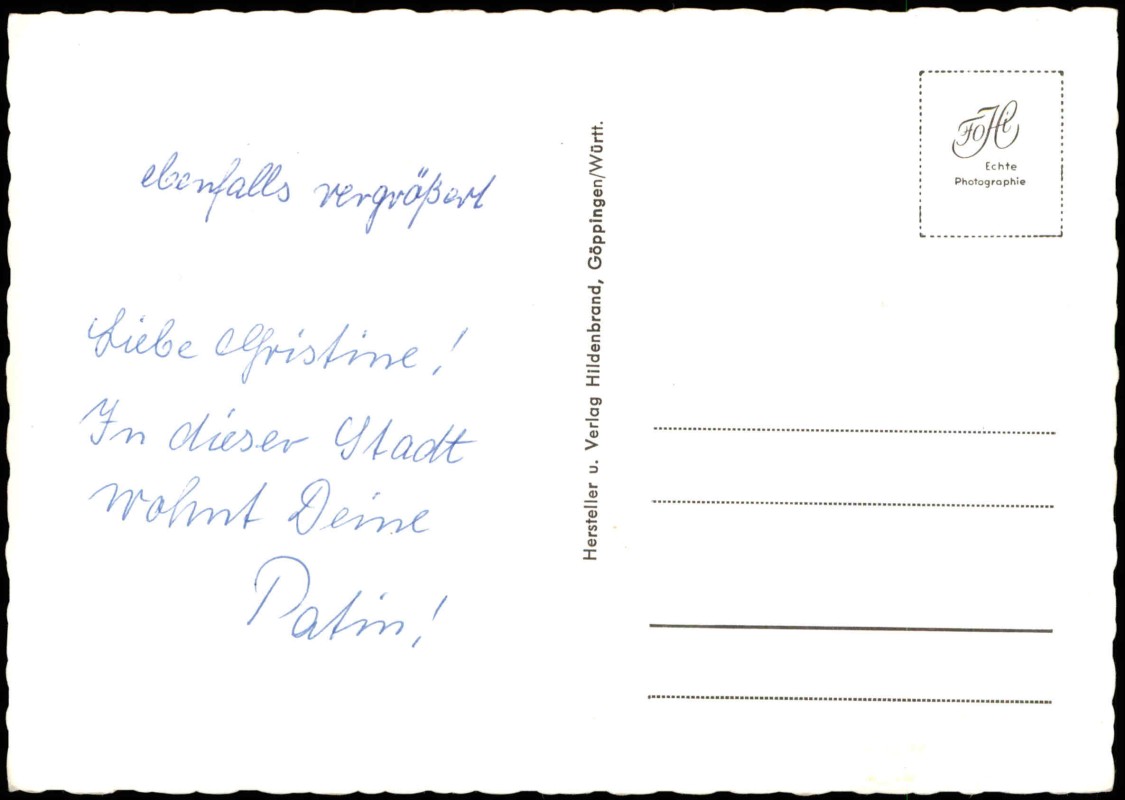 ebenfalls vergrößert
Liebe Christine!
In dieser Stadt
wohnt Deine
Patin!
Hersteller u. Verlag Hildenbrand, Göppingen/Württ.
FoHi
Echte
Photographie